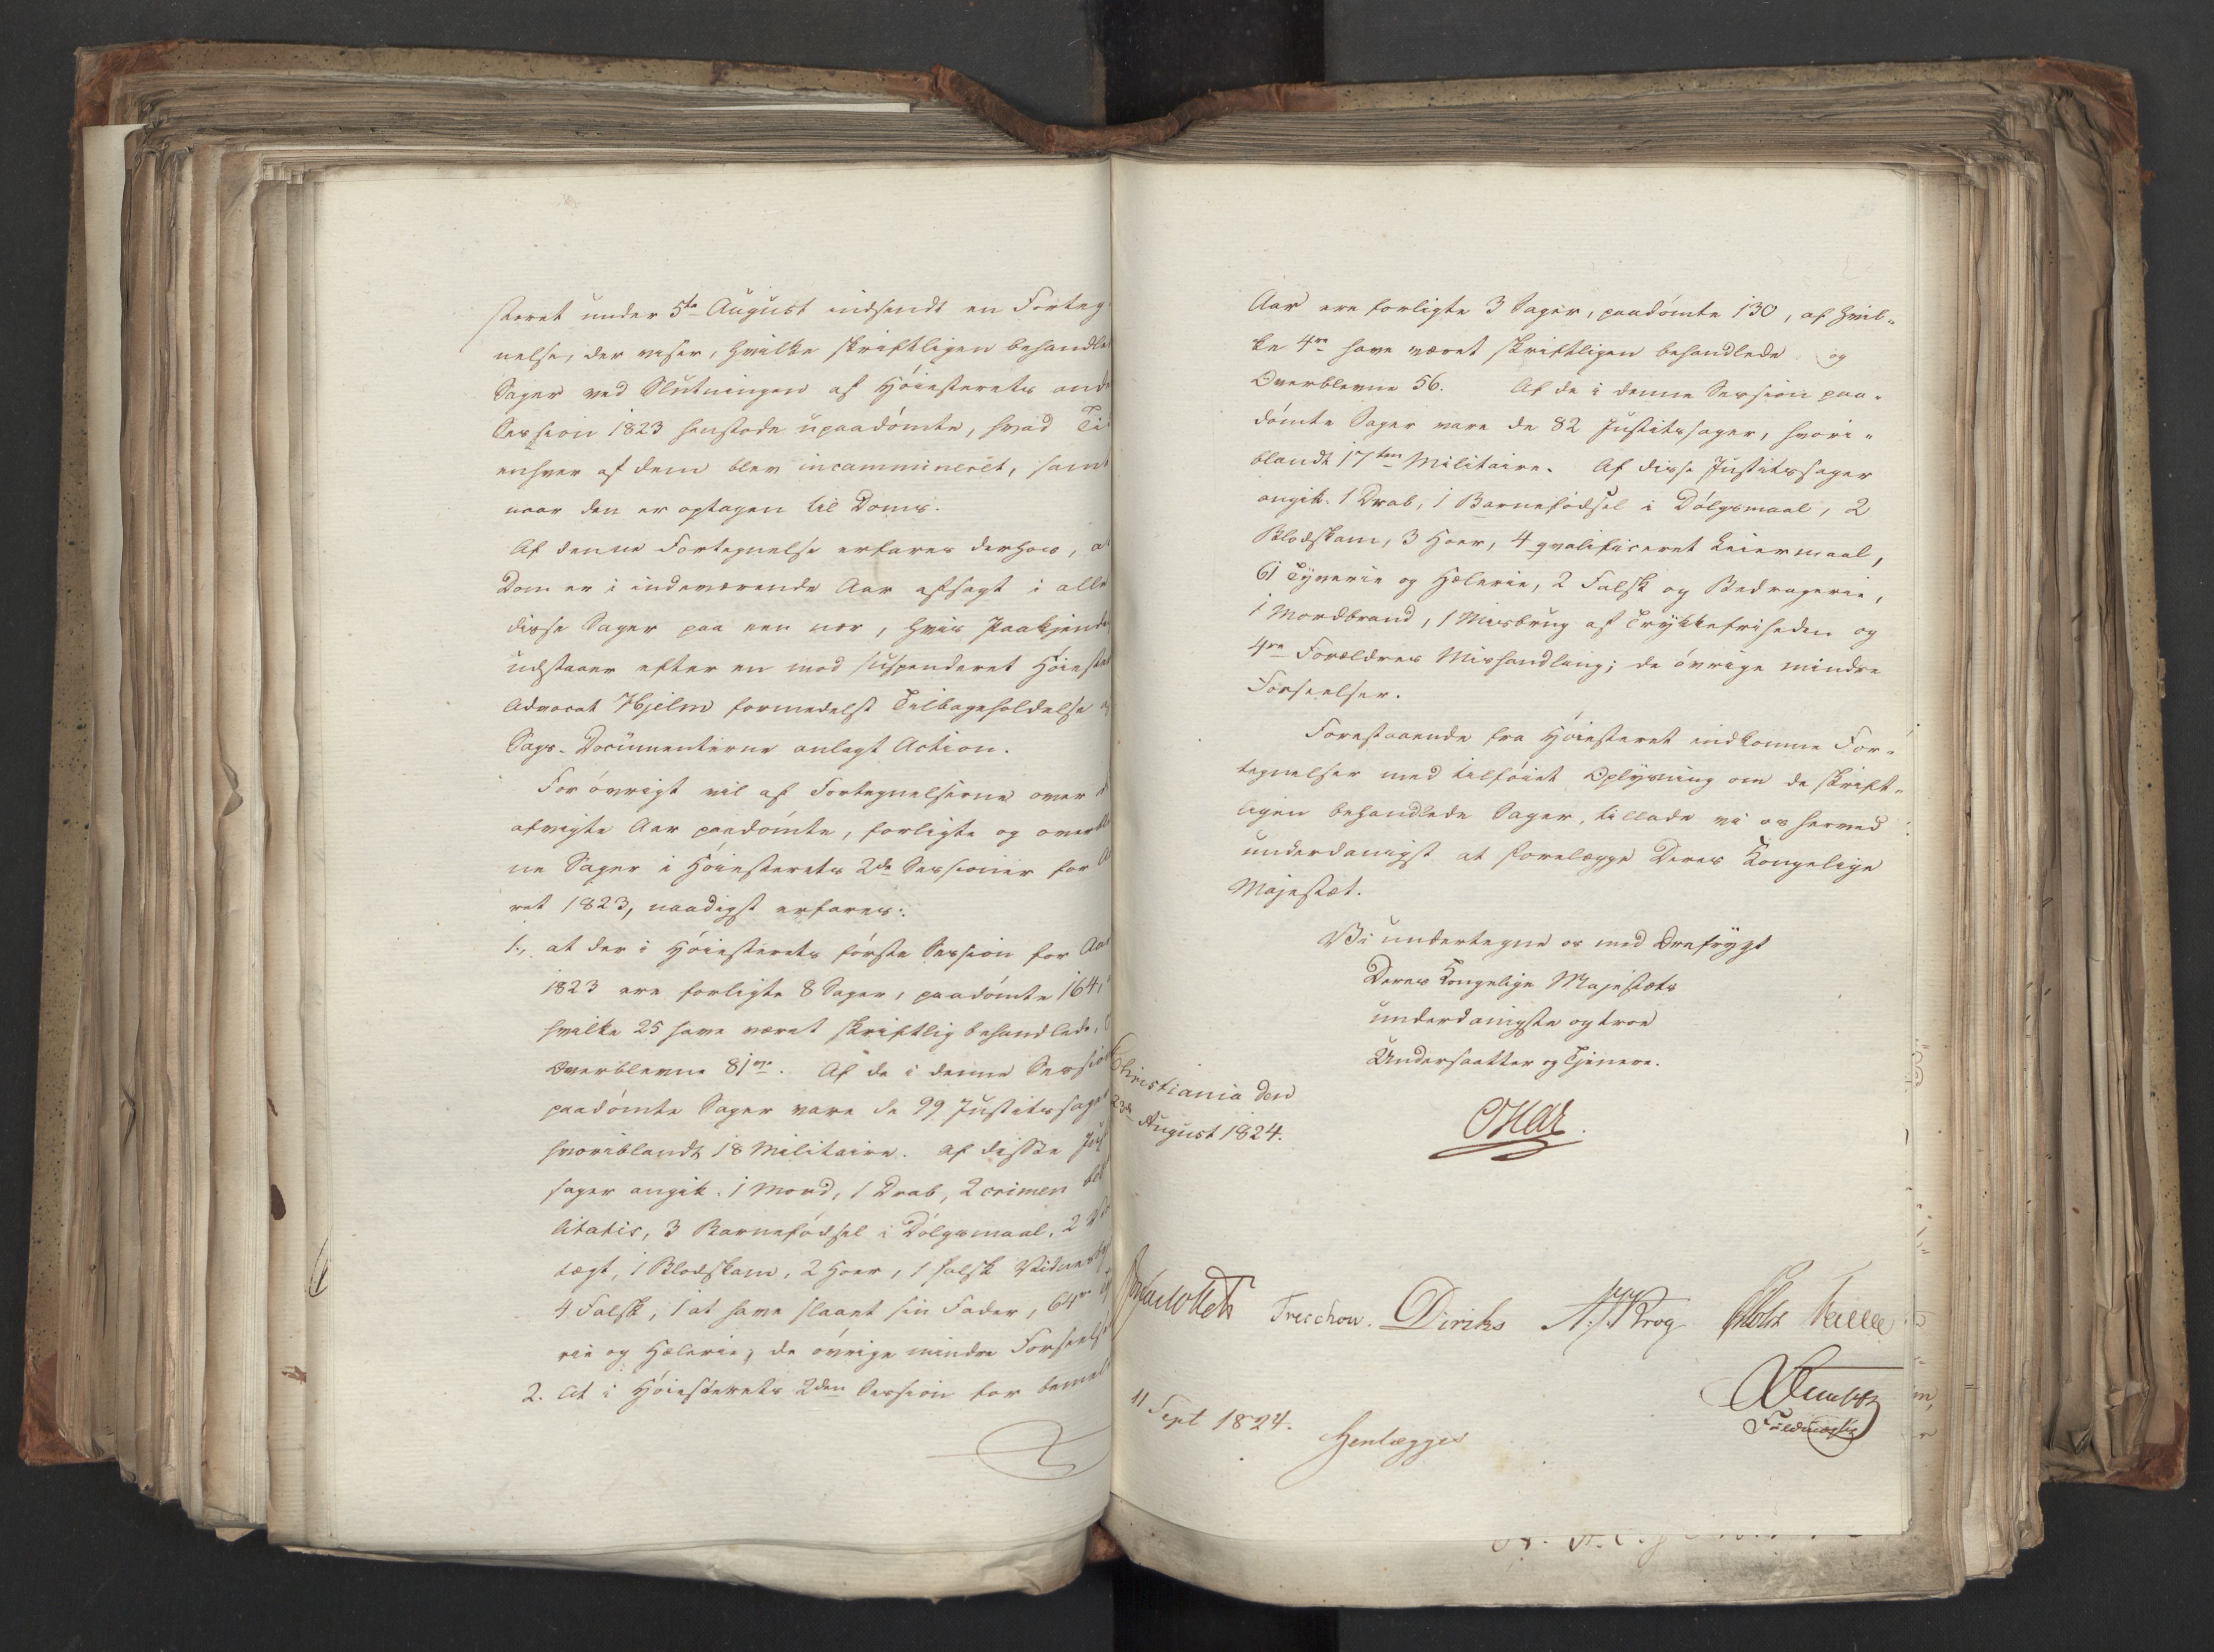 steret under 5te August indsendt en Forteg
nelse, der viser, hvilke skriftligen behandle
Sager ved Slutningen af Höiesterets and
Session 1823 henstode upaadömte, hvad Ti
enhver af dem blev incammineret, samt
naar den er optagen til Doms.
Af denne Fortegnelse erfares derhos, a
Dom er i indeværende Aar afsagt i alle
disse Sager paa een nær, hvis Paakjende
udstaaer efter en mod suspenderet Höieste
Advocat Hjelm formedelst Tilbageholdelse a
Sags-Documenterne anlagt Action.
For övrigt vil af Fortegnelserne over d
afvigte Aar paadömte, forligte og overbl
ne Sager i Höiesterets 2de Sessioner for A
ret 1823, naadigst erfares:
1., at der i Höiesterets förste Session for Aar
1823 ere forligte 8 Sager, paadömte 164,
hvilke 25 have været skriftlig behandlede,
Overblevne 81ne. Af de i denne Sessio
paadömte Sager vare de 99 Justitssage
hvoriblandt 18 Militaire. Af disse Jus
sager angik: 1 Mord, 1 Drab, 2 crimen
litatis, 3 Barnefödsel i Dölgsmaal, 2
tægt, 1 Blodskam, 2 Hoer, 1 falsk Vidnes
4 Falsk, 1 at have slaaet sin Fader, 64re
rie og Hælerie; de övrige mindre Forseelse
2. At i Höiesterets 2den Session for bemel
Aar ere forligte 3 Sager, paadömte 130, af hvil-
ke 4re have været skriftligen behandlede og
Overblevne 56. Af de i denne Session paa-
dömte Sager vare de 82 Justitssager, hvori-
blandt 17ten Militaire. Af disse Justitssager
angik: 1 Drab, 1 Barnefödsel i Dölgsmaal, 2
Blodskam, 3 Hoer, 4 qvalificeret Leiermaal,
61 Tyverie og Hælerie, 2 Falsk og Bedragerie,
1 Mordbrand, 1 Misbrug af Trykkefriheden og
4re Forældres Mishandling; de övrige mindre
Forseelser.
Forestaaende fra Höiesteret indkomne For-
tegnelser med tilföiet Oplysning om de skrift-
ligen behandlede Sager, tillade vi os herved
underdanigst at forelægge Deres Kongelige
Majestæt.
Vi undertegne os med Ærefrygt
Deres Kongelige Majestæts
underdanigste og troe
Undersaatter og Tjenere.
Christiania den
23de August 1824.
Treschow. Diriks Krog
11 Sept 1824.
Henlægges